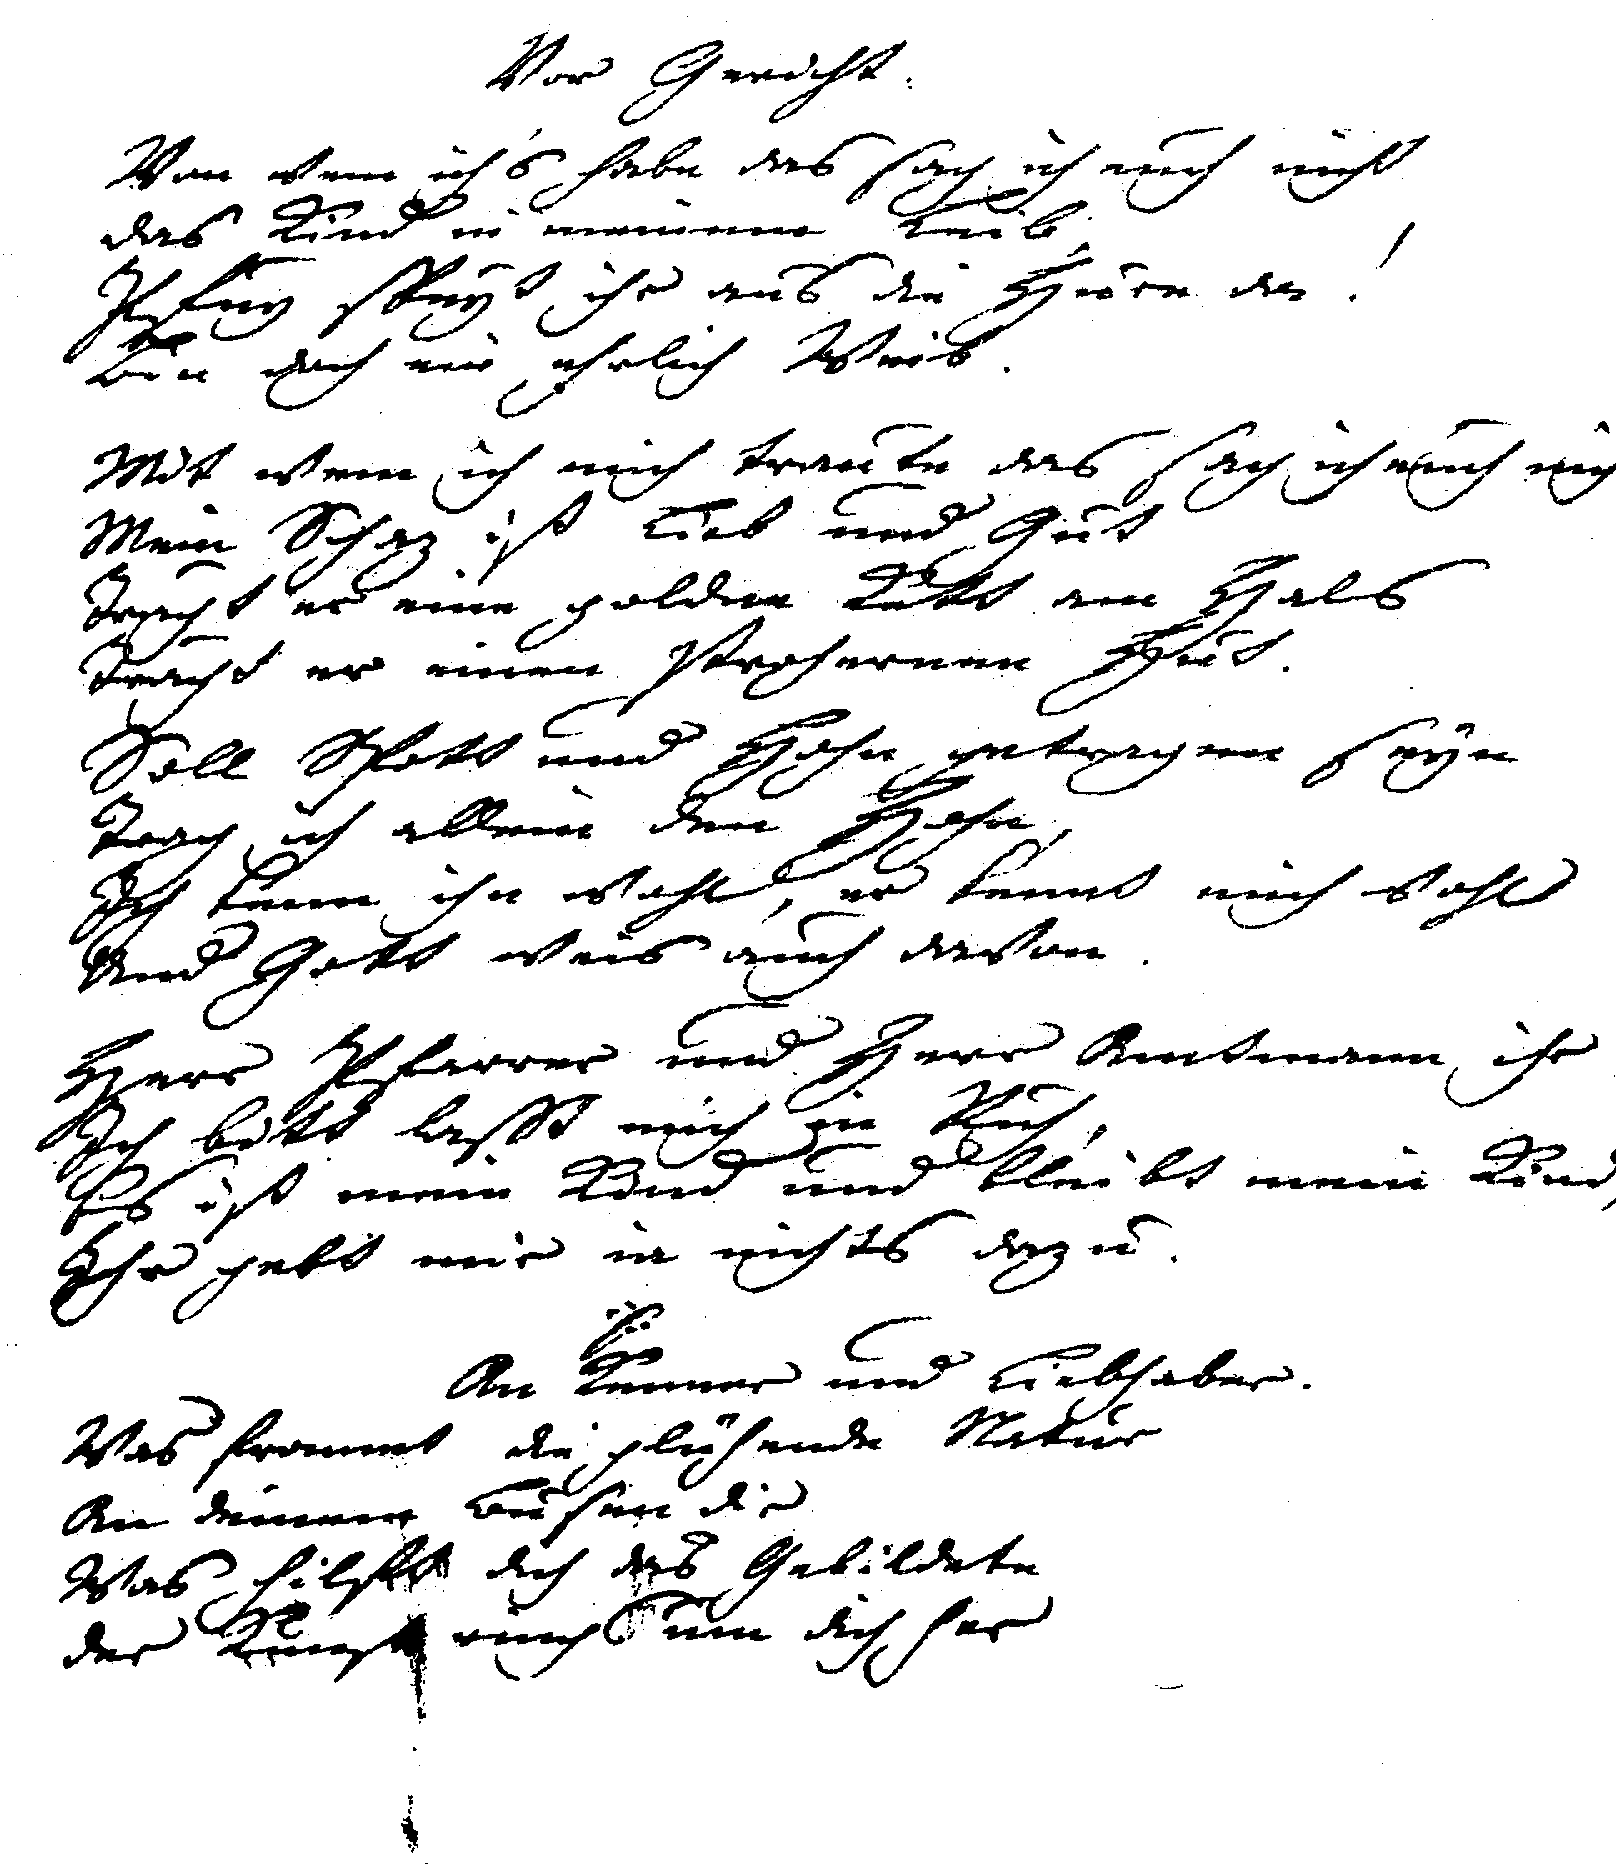 Vor Gericht.
Von wem ich's habe das sag ich euch nicht
das Kind in meinem Leib,
Pfuy speyt ihr aus die Hure da!
Bin doch ein ehrlich Weib.
Mit wem ich mich traute das sag ich euch nich
Mein Schaz ist Lieb und Gut
Trägt er eine goldne Kett am Hals
Trägt er einen strohernen Hut.
Soll Spott und Hohn getragen seyn
Trag ich allein den Hohn,
Ich kenn ihn wohl, er kennt mich wohl
Und Gott weis auch davon.
Herr Pfarrer und Herr Amtmann ihr
Ich bitt lasst mich in Ruh,
Es ist mein Kind und bleibt mein Kind,
Ihr gebt mir ia nichts dazu.
An Kenner und Liebhaber.
Was frommt die glühende Natur
An deinem Busen dir
Was hilfft dich das Gebildete
der Kunst rings um dich her